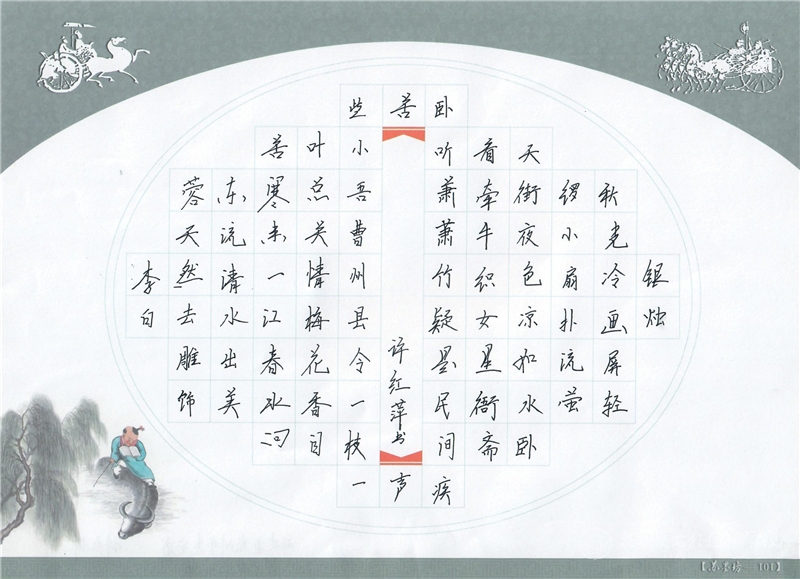 银烛
秋光冷画屏轻
锣小扇扑流萤
天街夜色凉如水卧
看牵牛织女星衙斋
卧听萧萧竹疑是民间疾
苦声
些小吾曹州县令一枝一
叶总关情梅花香自
苦寒来一江春水向
东流清水出芙
蓉天然去雕饰
李白
许红萍书
101